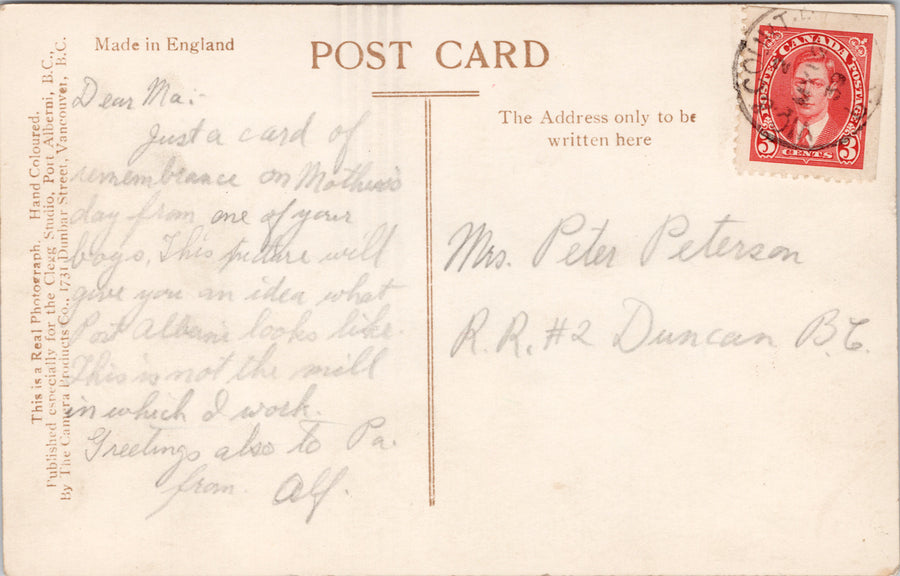 Made in England
POST CARD
The Address only to be
written here
This is a Real Photograph. Hand Coloured.
Published especially for the Clegg Studio, Port Alberni, B.C.,
By The Camera Products Co., 1731 Dunbar Street, Vancouver, B.C.
Dear Ma:-
Just a card of
remembrance on Mother's
day from one of your
boys. This picture will
give you an idea what
Port Alberni looks like.
This is not the mill
in which I work.
Greetings also to Pa.
from Alf.
Mrs. Peter Peterson
R.R. #2 Duncan B.C.
POSTES CANADA POSTAGE
3 CENTS 3